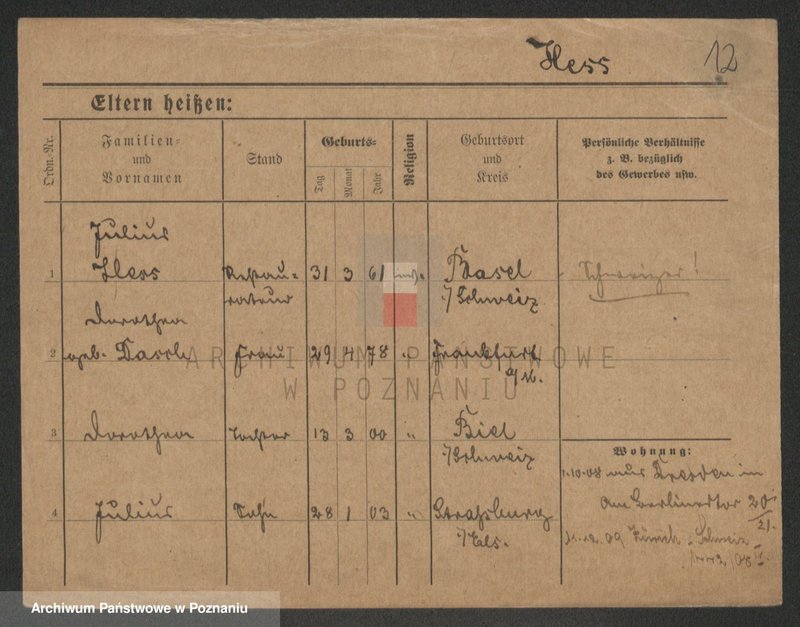 Hess 12
Eltern heißen:
Ordn.-Nr.
Familien-
und
Vornamen
Stand
Geburts-
Tag
Monat
Jahr
Religion
Geburtsort
und
Kreis
Persönliche Verhältnisse
z. B. bezüglich
des Gewerbes usw.
Julius
1 Hess Restau- 31 3 61 Basel Schweizer!
rateur i/ Schweiz
Dorothea
2 geb. Frau 29 4 78 " Frankfurt
a/M.
3 Dorothea Tochter 13 3 00 " Biel
i/ Schweiz
Wohnung:
1.10.08 aus Dresden in
4 Julius Sohn 28 1 03 " Straßburg Am Berlinertor 20
i/Els. 21.
09 Zürich - Schweiz
ARCHIWUM PAŃSTWOWE
W POZNANIU
Archiwum Państwowe w Poznaniu